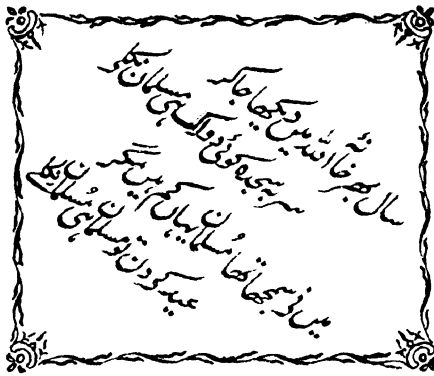 سال بھر خانۂ اللہ میں دیکھا جا کر
سر بہ سجدہ کوئی دو اک ہی مسلمان نکلے
میں نے سمجھا تھا مُسلمان یہاں کم ہیں مگر
عید کے دن تو مسلمان ہی مُسلمان نکلے